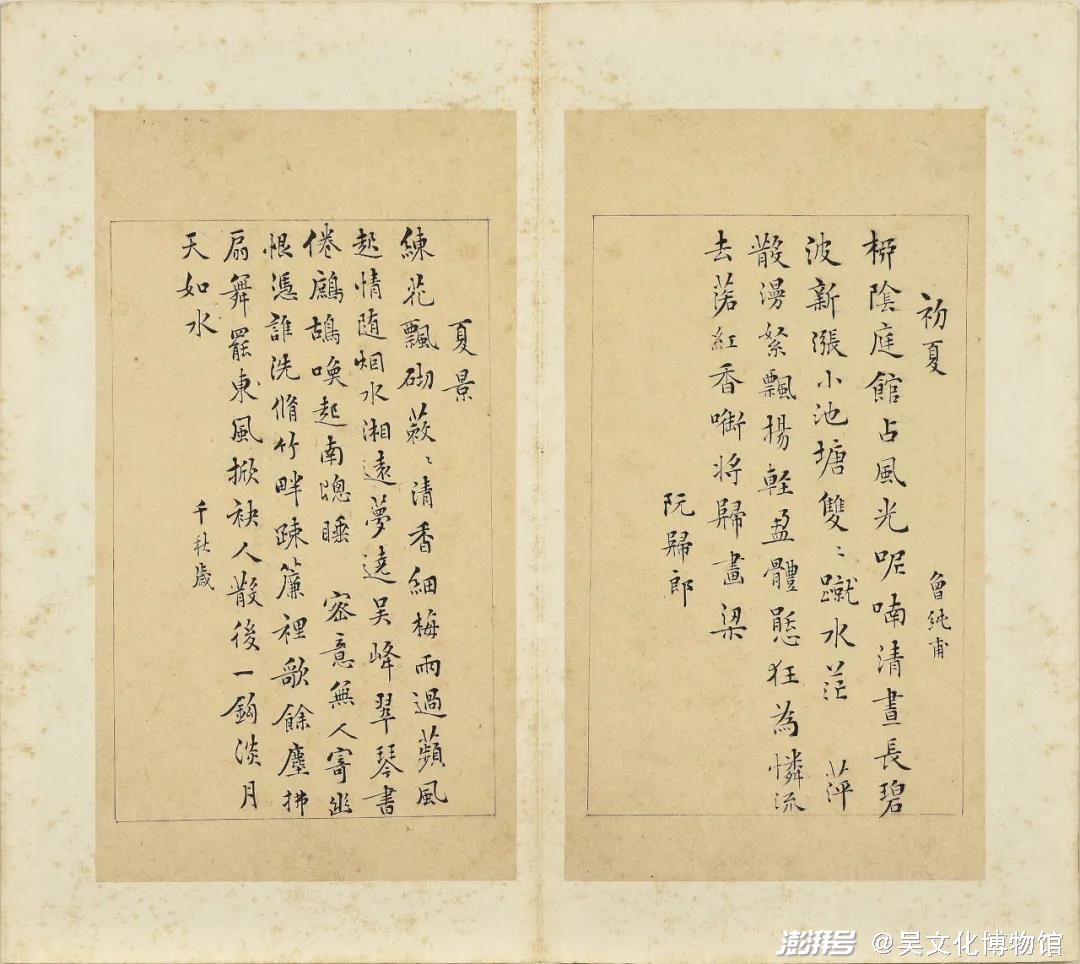 初夏
曾純甫
桺陰庭館占風光呢喃清晝長碧
波新漲小池塘雙〻蹴水茫 萍
散漫絮飄揚輕盈體態狂為憐流
去落紅香啣將歸畫梁
阮歸郎
夏景
練花飄砌蔌〻清香細梅雨過蘋風
起情随烟水湘遠夢遶吳峰翠琴書
倦鷓鴣喚起南窻睡 密意無人寄幽
恨憑誰洗脩竹畔疎簾裡歌餘塵拂
扇舞罷東風掀袂人散後一鈎淡月
天如水
千秋歲
澎湃号 @吴文化博物馆